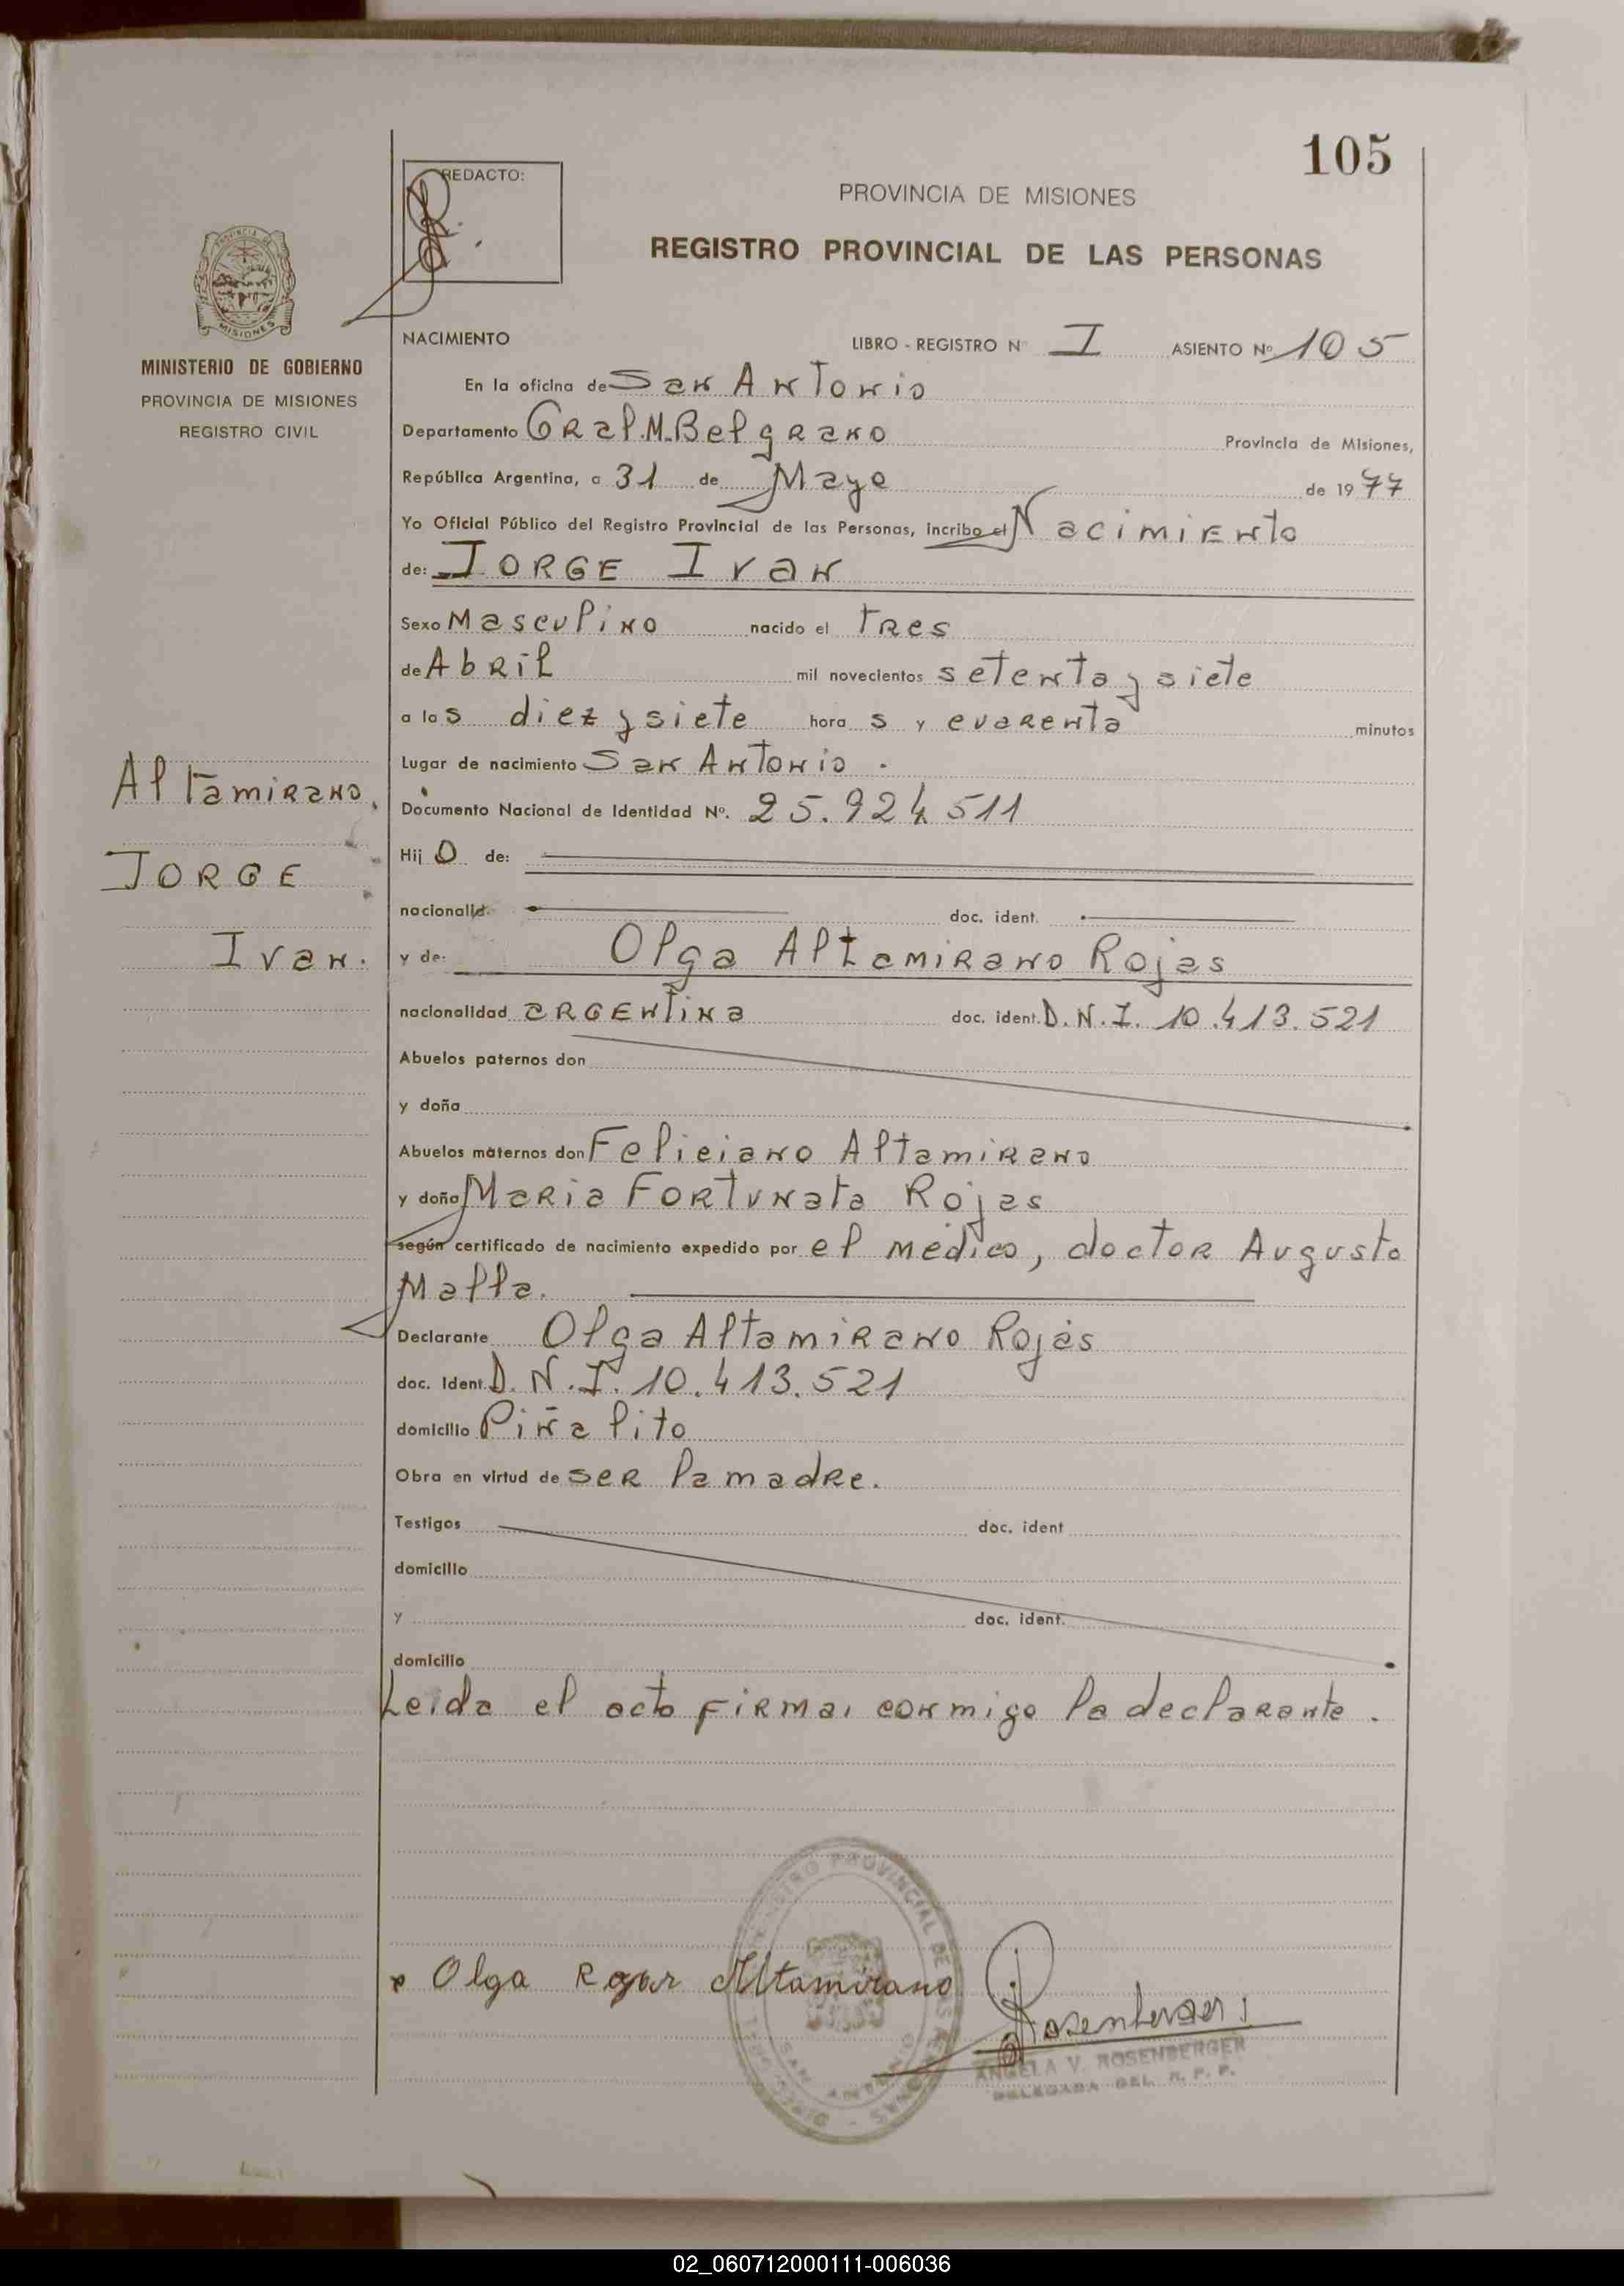 105
REDACTO:
PROVINCIA DE MISIONES
REGISTRO PROVINCIAL DE LAS PERSONAS
MISIONES
MINISTERIO DE GOBIERNO
PROVINCIA DE MISIONES
REGISTRO CIVIL
NACIMIENTO LIBRO - REGISTRO Nº I ASIENTO Nº 105
En la oficina de San Antonio
Departamento Gral. M. Belgrano Provincia de Misiones,
República Argentina, a 31 de Mayo de 1977
Yo Oficial Público del Registro Provincial de las Personas, incribo el Nacimiento
de: JORGE Ivan
Sexo Masculino nacido el tres
de Abril mil novecientos setenta y siete
a las diez y siete hora s y cuarenta minutos
Lugar de nacimiento San Antonio.
Documento Nacional de Identidad Nº. 25.924.511
Hij o de:
nacionalid. doc. ident.
y de: Olga Altamirano Rojas
nacionalidad argentina doc. ident. D.N.I. 10.413.521
Abuelos paternos don
y doña
Abuelos maternos don Feliciano Altamirano
y doña Maria Fortunata Rojas
según certificado de nacimiento expedido por el medico, doctor Augusto
Malla.
Declarante Olga Altamirano Rojas
doc. Ident. D.N.I. 10.413.521
domicilio Piñalito
Obra en virtud de ser la madre.
Testigos doc. ident
domicilio
y doc. ident.
domicilio
Leida el acto firma, conmigo la declarante.
Altamirano,
JORGE
Ivan.
Olga Altamirano
Rosenberger
ANGELA V. ROSENBERGER
DELEGADA DEL R. P. P.
REGISTRO PROVINCIAL DE LAS PERSONAS
SAN ANTONIO
02_060712000111-006036